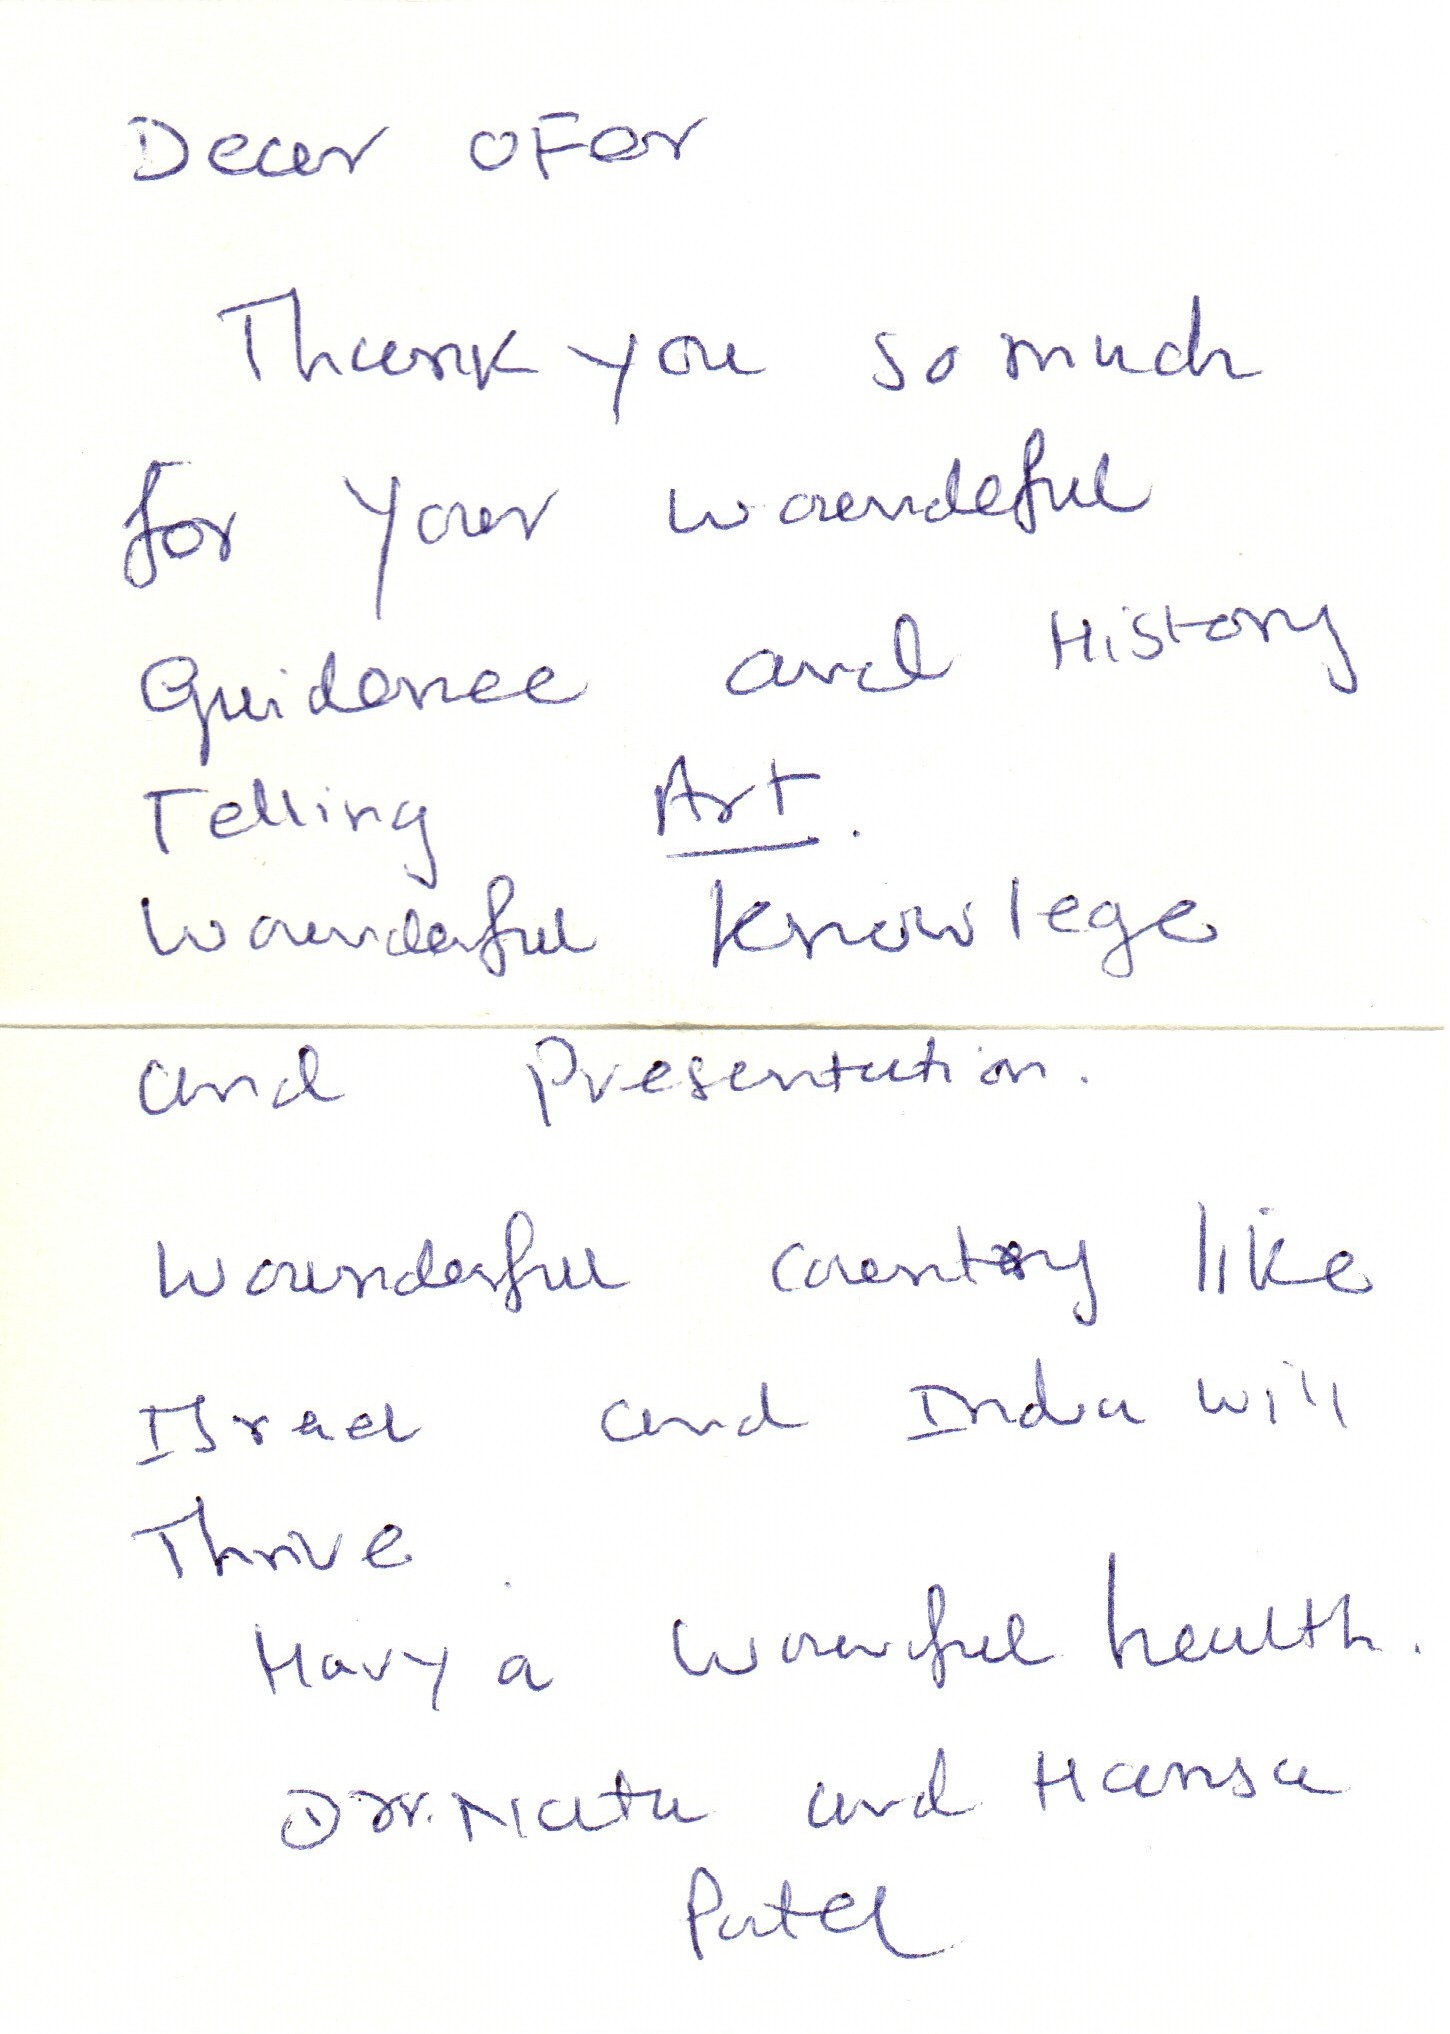 Dear OFer
Thank you so much
for your wounderful
Guidence and History
Telling Art.
Wounderful Knowlege
and Presentation.
Wounderful country like
Israel and India will
Thrive
Havy a health.
Dr. Natu and Hansa
Patel